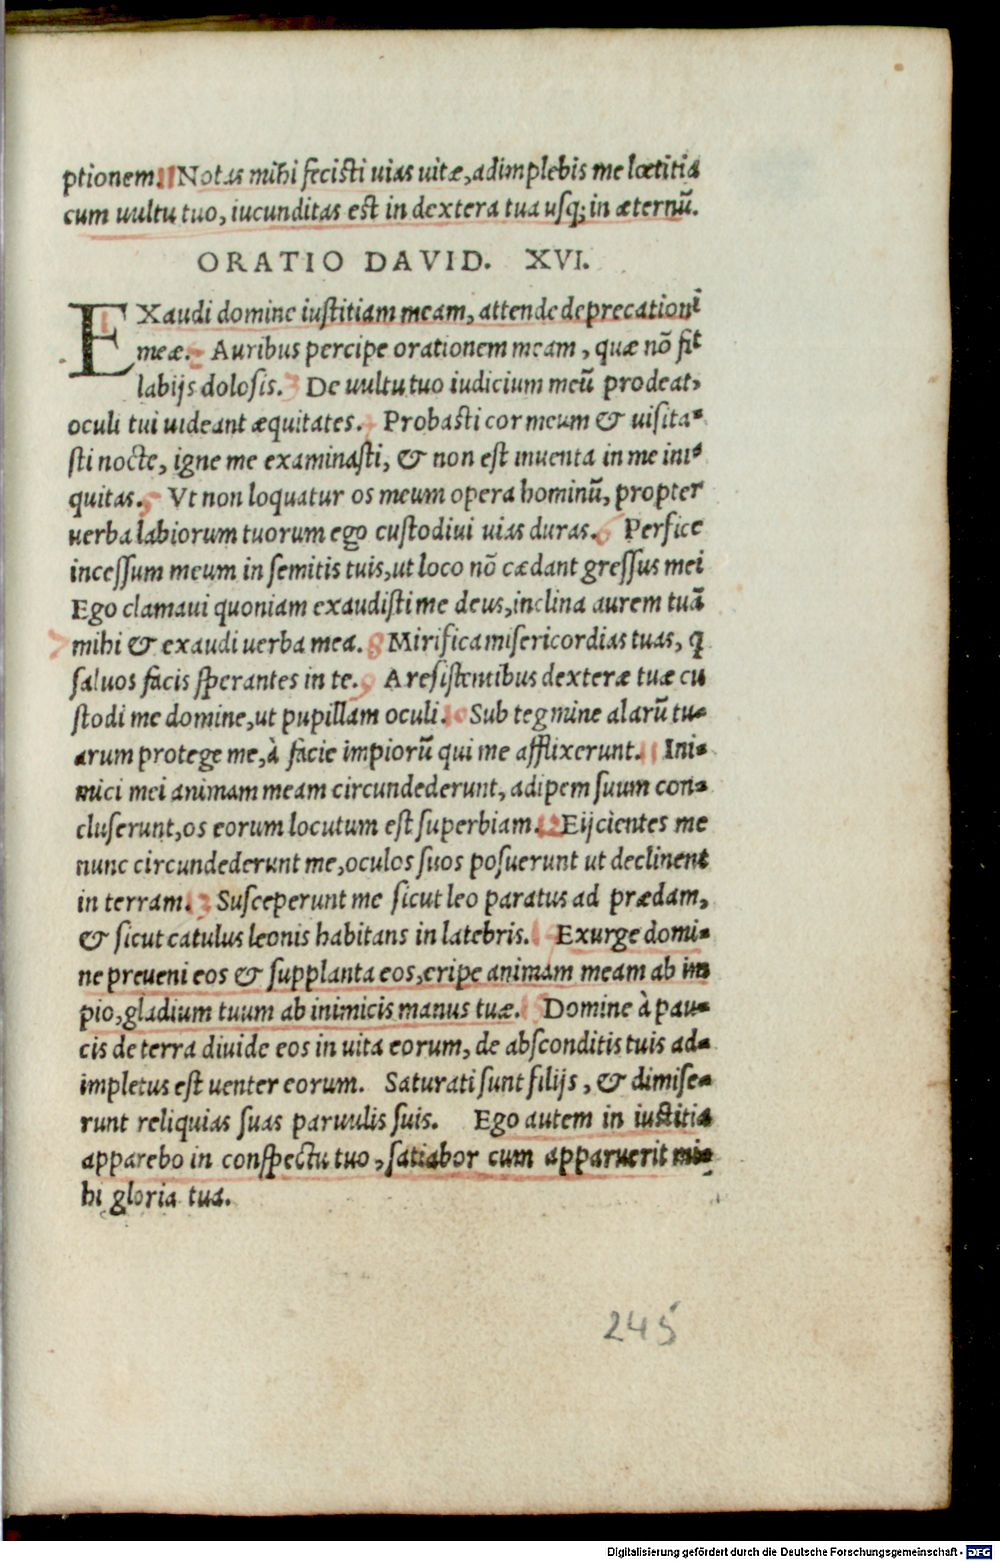 ptionem. 11 Notas mihi fecisti uias uitæ, adimplebis me lœtitia
cum uultu tuo, iucunditas est in dextera tua usq; in æternū.
ORATIO DAVID. XVI.
EXaudi domine iustitiam meam, attende deprecationī
meæ. 2 Auribus percipe orationem meam, quæ nō fit
labijs dolosis. 3 De uultu tuo iudicium meū prodeat,
oculi tui uideant æquitates. 4 Probasti cor meum & uisita-
sti nocte, igne me examinasti, & non est inuenta in me ini-
quitas. 5 Vt non loquatur os meum opera hominū, propter
uerba labiorum tuorum ego custodiui uias duras. 6 Perfice
incessum meum in semitis tuis, ut loco nō cædant gressus mei
Ego clamaui quoniam exaudisti me deus, inclina aurem tuā
7 mihi & exaudi uerba mea. 8 Mirifica misericordias tuas, q
saluos facis sperantes in te. 9 A resistentibus dexteræ tuæ cu
stodi me domine, ut pupillam oculi. 10 Sub tegmine alarū tu-
arum protege me, à facie impiorū qui me afflixerunt. 11 Ini-
mici mei animam meam circundederunt, adipem suum con-
cluserunt, os eorum locutum est superbiam. 12 Eijcientes me
nunc circundederunt me, oculos suos posuerunt ut declinent
in terram. 13 Susceperunt me sicut leo paratus ad prædam,
& sicut catulus leonis habitans in latebris. Exurge domi-
ne preueni eos & supplanta eos, eripe animam meam ab im
pio, gladium tuum ab inimicis manus tuæ. Domine à pau-
cis de terra diuide eos in uita eorum, de absconditis tuis ad-
impletus est uenter eorum. Saturati sunt filijs, & dimise-
runt reliquias suas paruulis suis. Ego autem in iustitia
apparebo in conspectu tuo, satiabor cum apparuerit mi-
hi gloria tua.
245
Digitalisierung gefördert durch die Deutsche Forschungsgemeinschaft - DFG